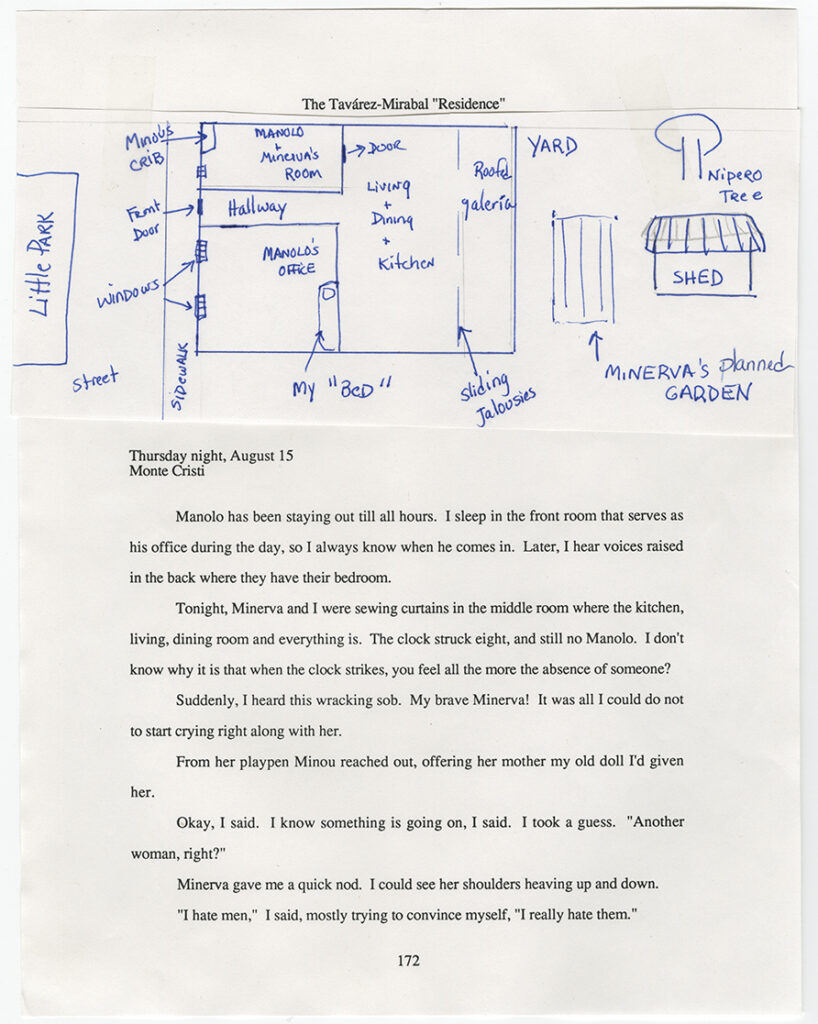 The Tavárez-Mirabal "Residence"
Minou's
CRIB
MANOLO
+
Minerva's
ROOM
DOOR
YARD
Nipero
Tree
Roofed
galería
Living
+
Dining
+
Kitchen
Front
Door
Hallway
Little PARK
MANOLO'S
OFFICE
WINDOWS
SHED
Street
SIDEWALK
My "BED"
Sliding
Jalousies
MINERVA'S planned
GARDEN
Thursday night, August 15
Monte Cristi
Manolo has been staying out till all hours. I sleep in the front room that serves as
his office during the day, so I always know when he comes in. Later, I hear voices raised
in the back where they have their bedroom.
Tonight, Minerva and I were sewing curtains in the middle room where the kitchen,
living, dining room and everything is. The clock struck eight, and still no Manolo. I don't
know why it is that when the clock strikes, you feel all the more the absence of someone?
Suddenly, I heard this wracking sob. My brave Minerva! It was all I could do not
to start crying right along with her.
From her playpen Minou reached out, offering her mother my old doll I'd given
her.
Okay, I said. I know something is going on, I said. I took a guess. "Another
woman, right?"
Minerva gave me a quick nod. I could see her shoulders heaving up and down.
"I hate men," I said, mostly trying to convince myself, "I really hate them."
172